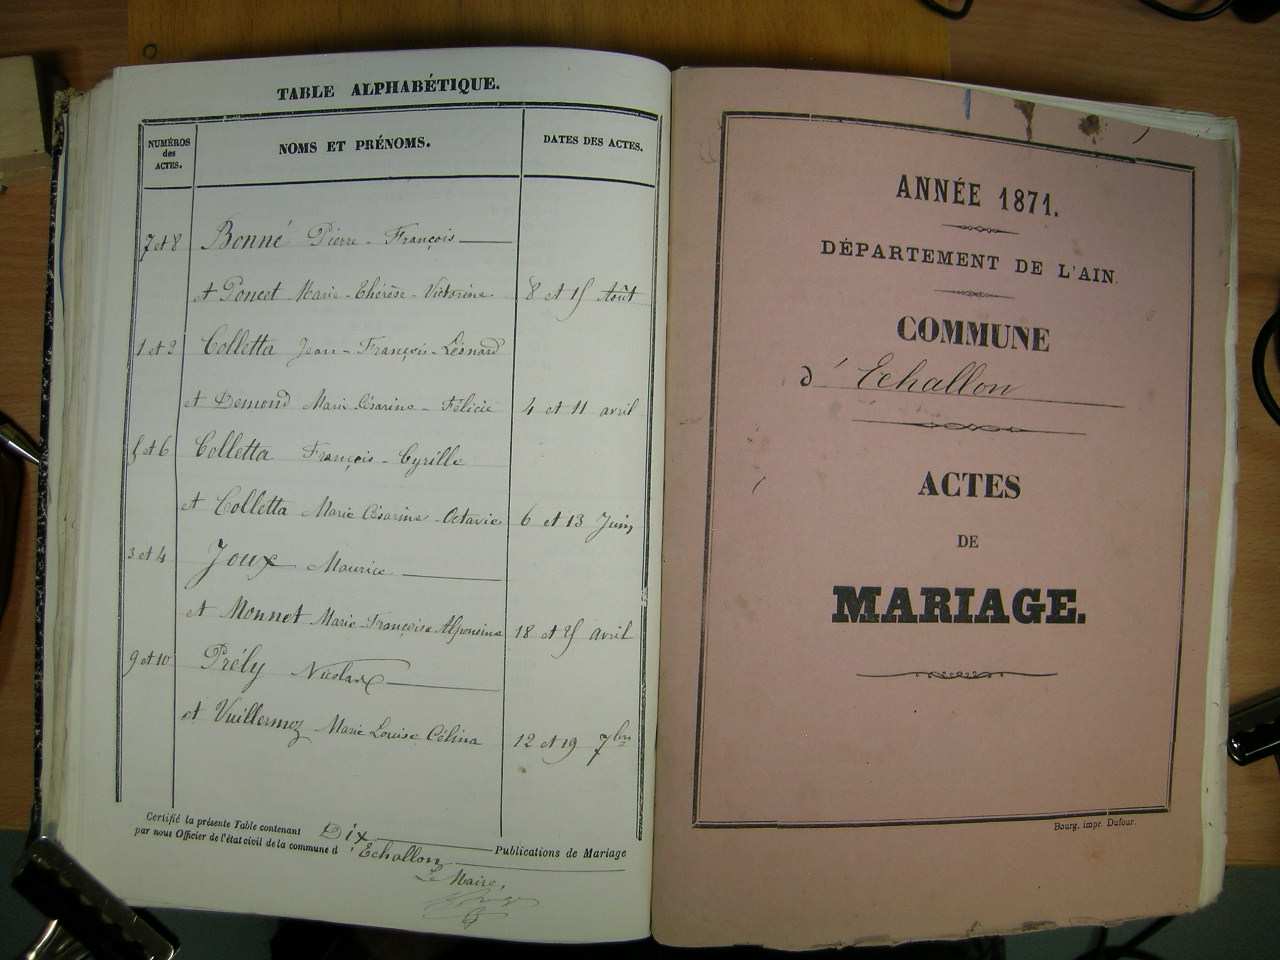 TABLE ALPHABÉTIQUE.
NUMÉROS des ACTES.
NOMS ET PRÉNOMS.
DATES DES ACTES.
7 et 8 Bonné Pierre - François
et Poncet Marie - Thérèse - Victorine 8 et 15 Août
1 et 2 Colletta Jean - François - Léonard
et Demond Marie Césarine - Félicie 4 et 11 avril
5 et 6 Colletta François - Cyrille
et Colletta Marie Césarine - Octavie 6 et 13 Juin
3 et 4 Joux Maurice
et Monnet Marie - Françoise Alponsine 18 et 25 avril
9 et 10 Prély Nicolas
et Vuillermoz Marie Louise Célina 12 et 19 7bre
Certifié la présente Table contenant Dix Publications de Mariage
par nous Officier de l'état civil de la commune d'Echallon
Le Maire,
ANNÉE 1871.
DÉPARTEMENT DE L'AIN
COMMUNE
d'Echallon
ACTES
DE
MARIAGE.
Bourg, impr. Dufour.